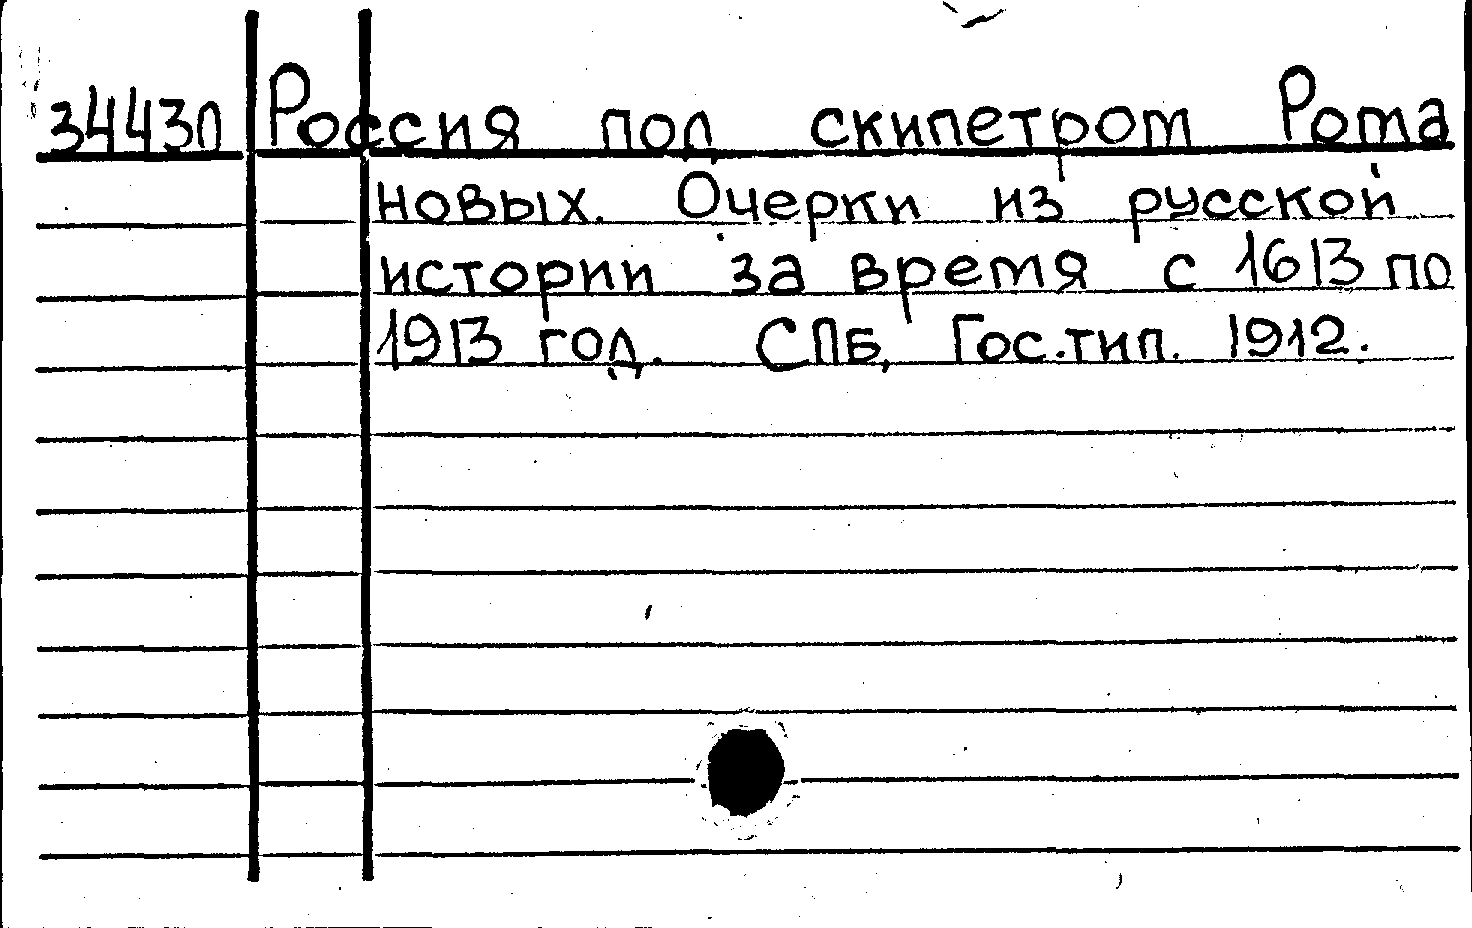 34430 Россия под скипетром Рома
новых. Очерки из русской
истории за время с 1613 по
1913 год. СПБ, Гос.тип. 1912.